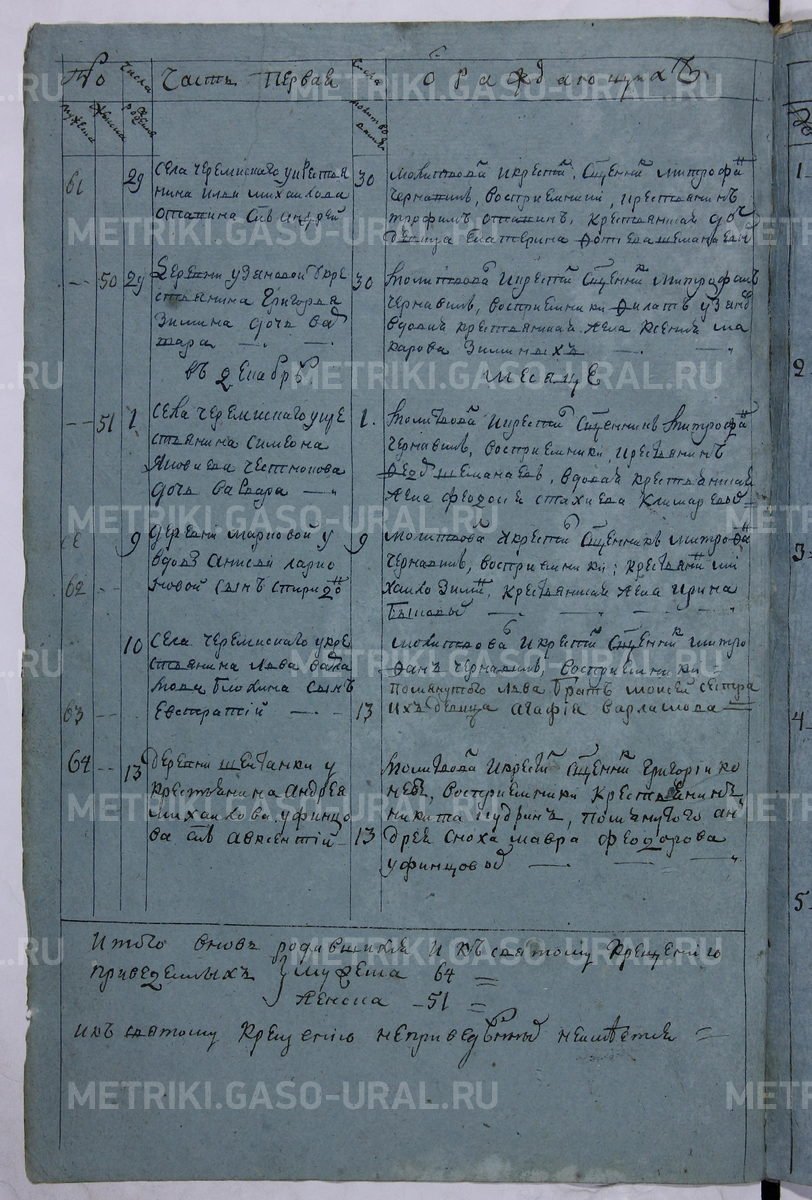 № Числа рождения Часть первая Числа молитвования О раждающихся
мужеска женска
61 29 Села Черемисскаго у крестья
нина Илии Михайлова
Отанина сынъ Андрей
30 молитвовалъ и крестилъ Священникъ Митрофанъ
Чернавинъ, Восприемники, крестьянинъ
трофимъ отанинъ, крестьянская дочь
девица Екатерина Фотиева шеманаева
-- 50 29 Деревни узяновой у кре
стьянина Григорья
Зимина дочь Ва
30 молитвовалъ и крестилъ Священникъ Митрофанъ
Чернавинъ, восприемники Филатъ
вдова крестьянская жена Ксения Ма
карова Зиминыхъ
въ Декабрѣ Месяце
-- 51 1 Села Черемисскаго у кре
стьянина Симеона
Яковлева
дочь Варвара
1. молитвовалъ и крестилъ Священникъ Митрофанъ
Чернавинъ, Восприемники, крестьянинъ
шеманаевъ, вдова крестьянская
жена феодосия
62 9 деревни Марковой у
вдовы Анисии ларио
новой сынъ Спиридонъ
9 молитвовалъ и крестилъ Священникъ Митрофанъ
Чернавинъ, восприемники: крестьянинъ Ми
хайло Зиминъ, крестьянская жена Ирина
63 -- 10 Села Черемисскаго у кре
стьянина Льва Варла
мова Блохина сынъ
Евстратий
13 молитвовалъ и крестилъ Священникъ митро
фанъ Чернавинъ, восприемники
помянутого Льва братъ Моисей сестра
ихъ девица Агафiа варламова
64 -- 13 деревни шайтанки у
крестьянина Андрея
Михайлова уфинцо
ва сынъ Авксентий
13 молитвовалъ и крестилъ Священникъ Григорий Ко
невъ, восприемники крестьянинъ
никита кудринъ, помянутого ан
дрея сноха мавра феодорова
уфинцовыхъ
Итого вновь родившихся и къ святому крещению
приведенныхъ { Мужеска 64
женска - 51
и къ святому крещению неприведенныхъ неимѣется
METRIKI.GASO-URAL.RU